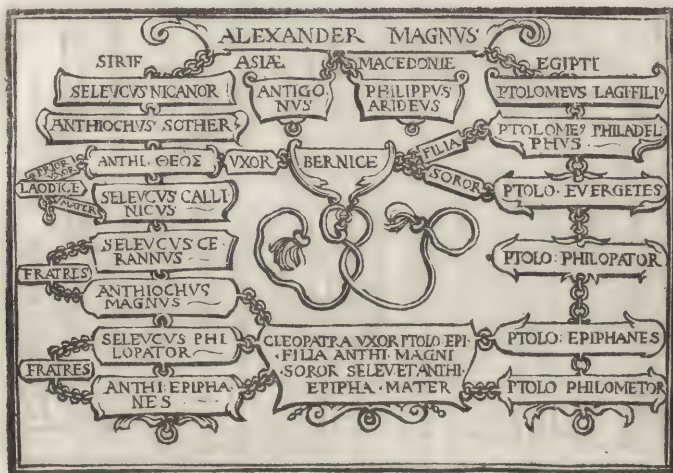 ALEXANDER MAGNVS
SIRIE ASIÆ MACEDONIE EGIPTI
SELEVCVS NICANOR
ANTIGO
NVS
PHILIPPVS
ARIDEVS
PTOLOMEVS LAGI FILIꝰ
ANTHIOCHVS SOTHER
PTOLOMEꝰ PHILADEL
PHVS
PRIOR VXOR
LAODICE
MATER
ANTHI. ΘΕΟΣ
VXOR
BERNICE
FILIA
SOROR
SELEVCVS CALLI
NICVS
PTOLO EVERGETES
SELEVCVS CE
RANNVS
FRATRES
ANTHIOCHVS
MAGNVS
PTOLO: PHILOPATOR
SELEVCVS PHI
LOPATOR
FRATRES
ANTHI: EPIPHA
NES
CLEOPATRA VXOR PTOLO EPI·
FILIA ANTHI· MAGNI
SOROR SELEV ET ANTHI
EPIPHA · MATER
PTOLO: EPIPHANES
PTOLO PHILOMETOR